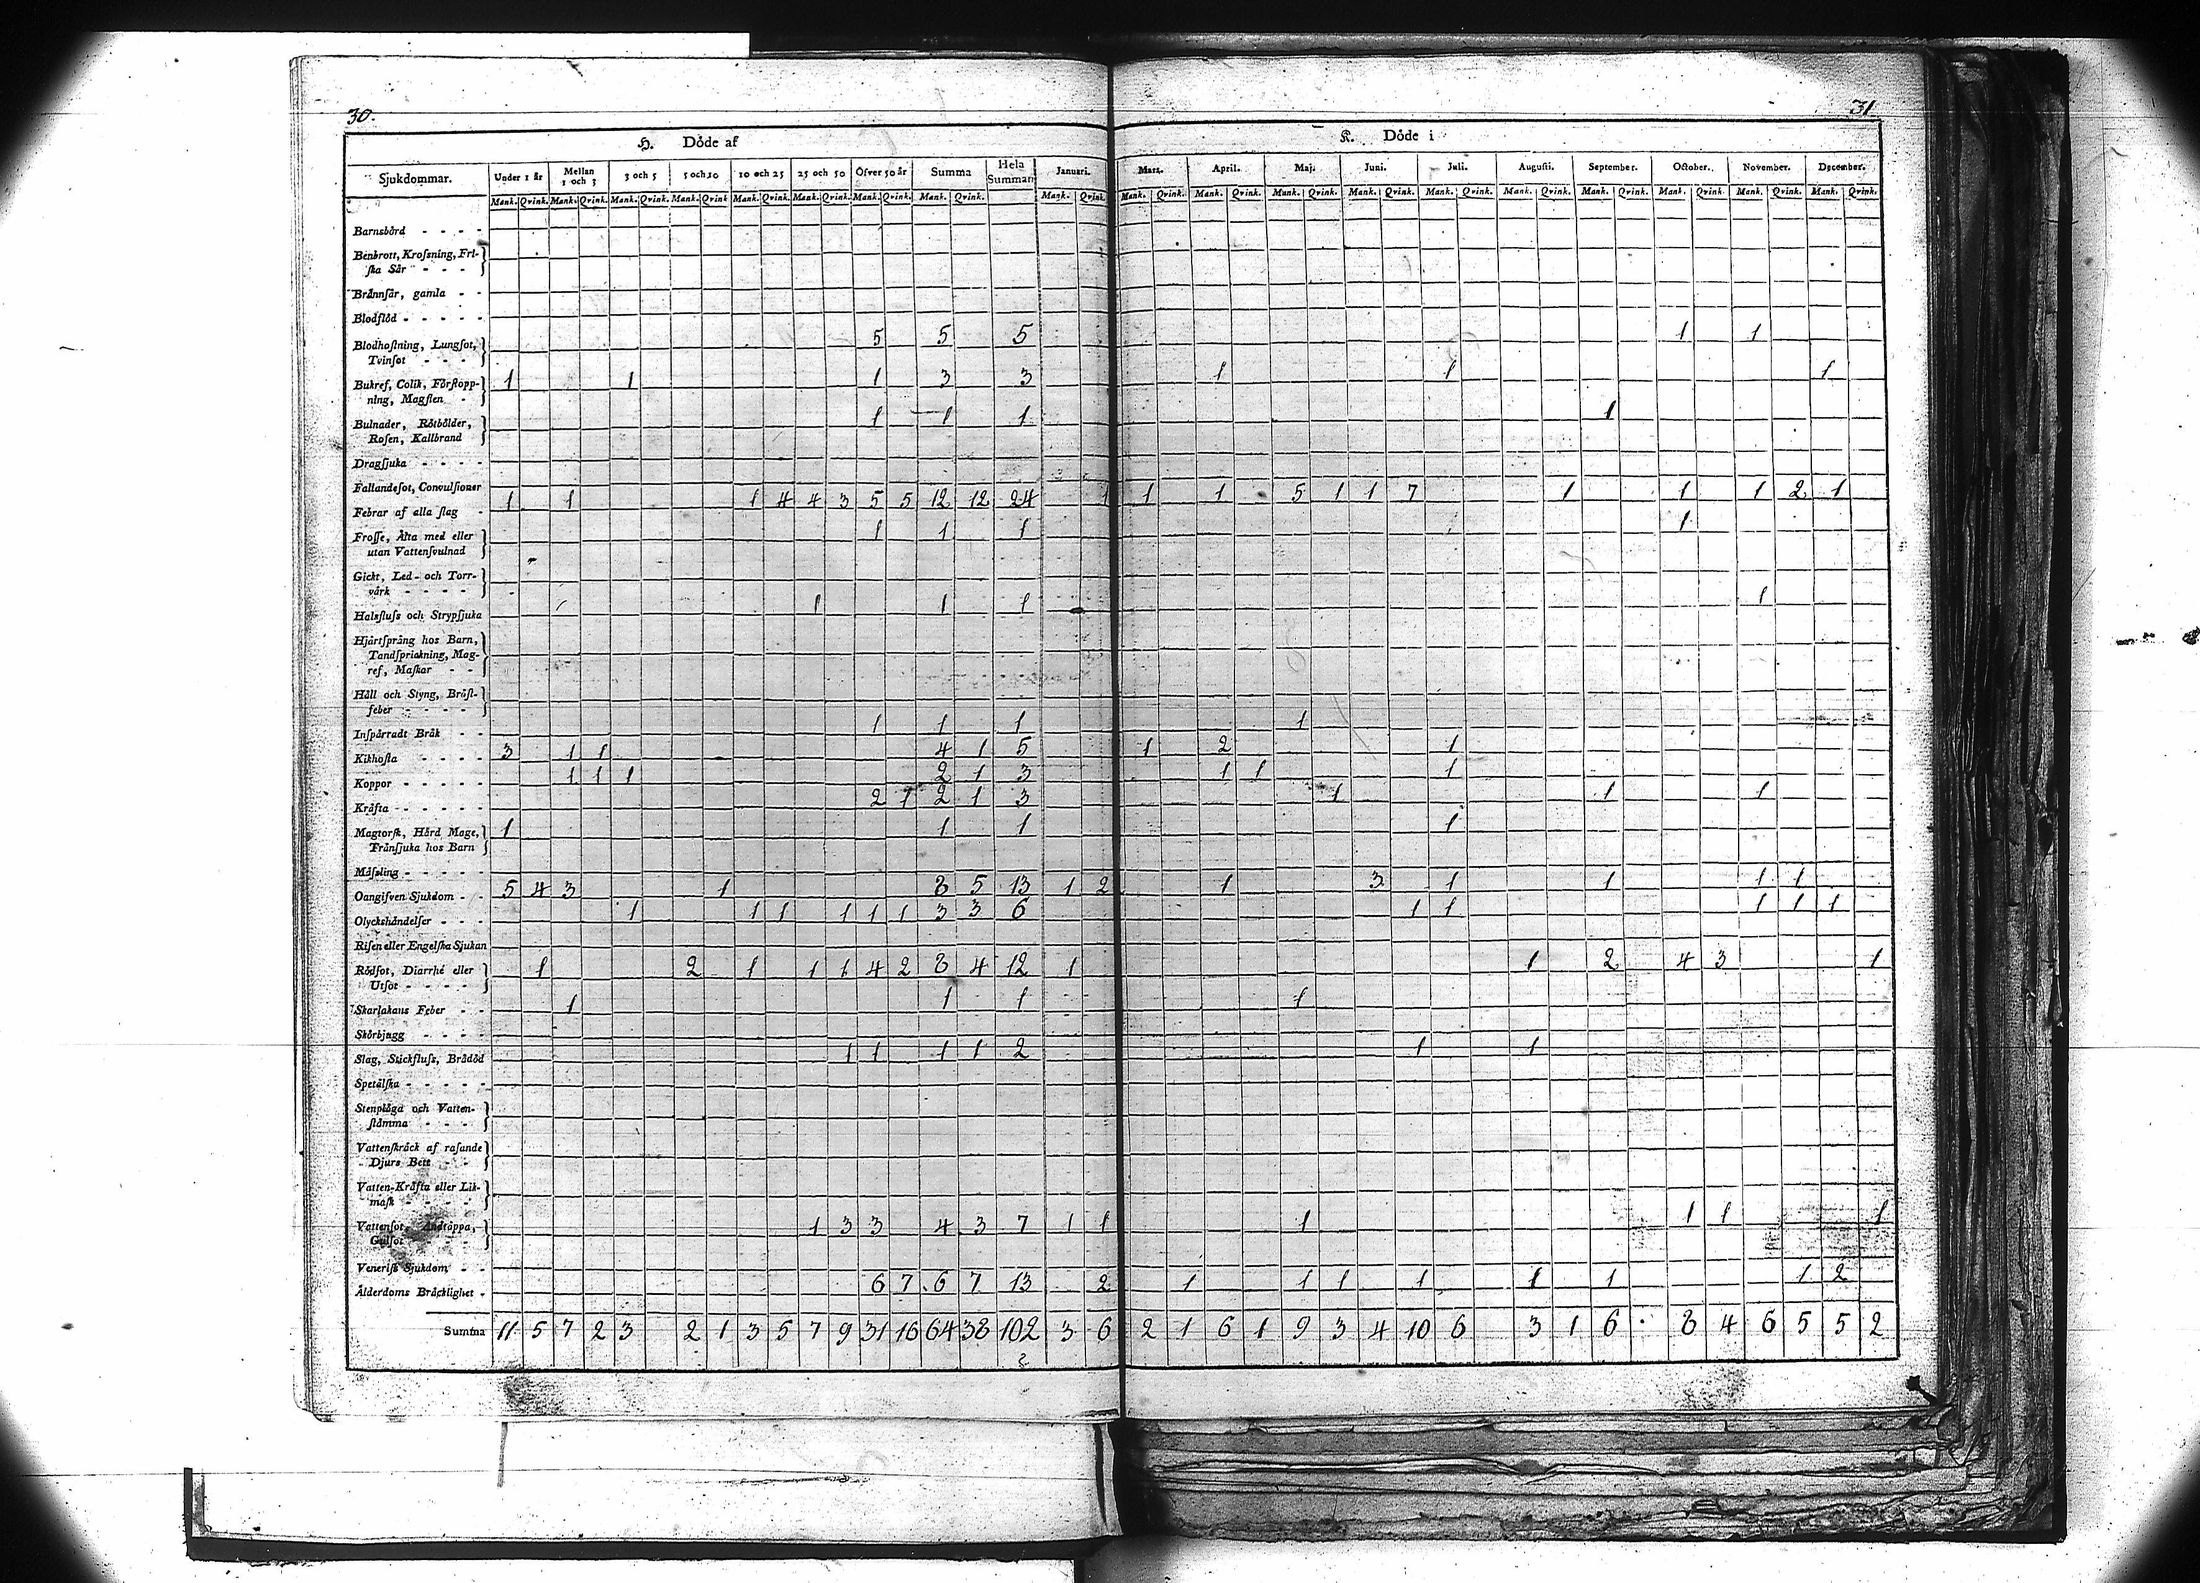 30.
31
H. Döde af
K. Döde i
Sjukdommar. Under 1 år Mellan 1 och 3 3 och 5 5 och 10 10 och 25 25 och 50 Öfver 50 år Summa Hela Summan Januari. Mars. April. Maj. Juni. Juli. Augusti. September. October. November. December.
Mank. Qvink. Mank. Qvink. Mank. Qvink. Mank. Qvink Mank. Qvink. Mank. Qvink. Mank. Qvink. Mank. Qvink. Mank. Qvink. Mank. Qvink. Mank. Qvink. Mank. Qvink. Mank. Qvink. Mank. Qvink. Mank. Qvink. Mank. Qvink. Mank. Qvink. Mank. Qvink. Mank. Qvink.
Barnsbörd - - - -
Benbrott, Krossning, Fri-
ska Sår - - -
Brännsår, gamla - -
Blodflöd - - - - -
Blodhostning, Lungsot, 5 5 5 1 1
Tvinsot - - -
Bukref, Colik, Förstopp- 1 1 1 3 3 1 1 1
ning, Magsten -
Bulnader, Rötbölder, 1 1 1 1
Rosen, Kallbrand
Dragsjuka - - - -
Fallandesot, Convulsioner
Febrar af alla slag - 1 1 1 4 4 3 5 5 12 12 24 1 1 1 5 1 1 7 1 1 1 2 1
Frosse, Älta med eller 1 1 1 1
utan Vattensvulnad
Gickt, Led- och Torr-
värk - - - -
Halsfluss och Strypsjuka 1 1 1 1
Hjärtsprång hos Barn,
Tandsprickning, Mag-
ref, Maskar - -
Håll och Styng, Bröst-
feber - - - -
Inspärradt Bråk - - 1 1 1 1
Kikhosta - - - - 3 1 1 4 1 5 1 2 1
Koppor - - - - - 1 1 1 2 1 3 1 1 1
Kräfta - - - - - 2 1 2 1 3 1 1 1
Magtorsk, Hård Mage, 1 1 1 1
Trånsjuka hos Barn
Mässling - - - - -
Oangifven Sjukdom - - 5 4 3 1 8 5 13 1 2 1 3 1 1 1 1
Olyckshändelser - - - 1 1 1 1 1 1 3 3 6 1 1 1 1 1
Risen eller Engelska Sjukan
Rödsot, Diarrhé eller 1 2 1 1 1 4 2 8 4 12 1 1 2 4 3 1
Utsot - - - -
Skarlakans Feber - - 1 1 1 1
Skörbjugg - - - -
Slag, Stickfluss, Brådöd 1 1 1 1 2 1 1
Spetälska - - - - -
Stenplåga och Vatten-
stämma - - -
Vattenskräck af rasande
Djurs Bett - -
Vatten-Kräfta eller Lik-
mask - - - -
Vattensot, Andtäppa, 1 3 3 4 3 7 1 1 1 1 1 1
Gulsot - -
Venerisk Sjukdom - -
Ålderdoms Bräcklighet - 6 7 6 7 13 2 1 1 1 1 1 1 1 2
Summa 11 5 7 2 3 2 1 3 5 7 9 31 16 64 38 102 3 6 2 1 6 1 9 3 4 10 6 3 1 6 8 4 6 5 5 2